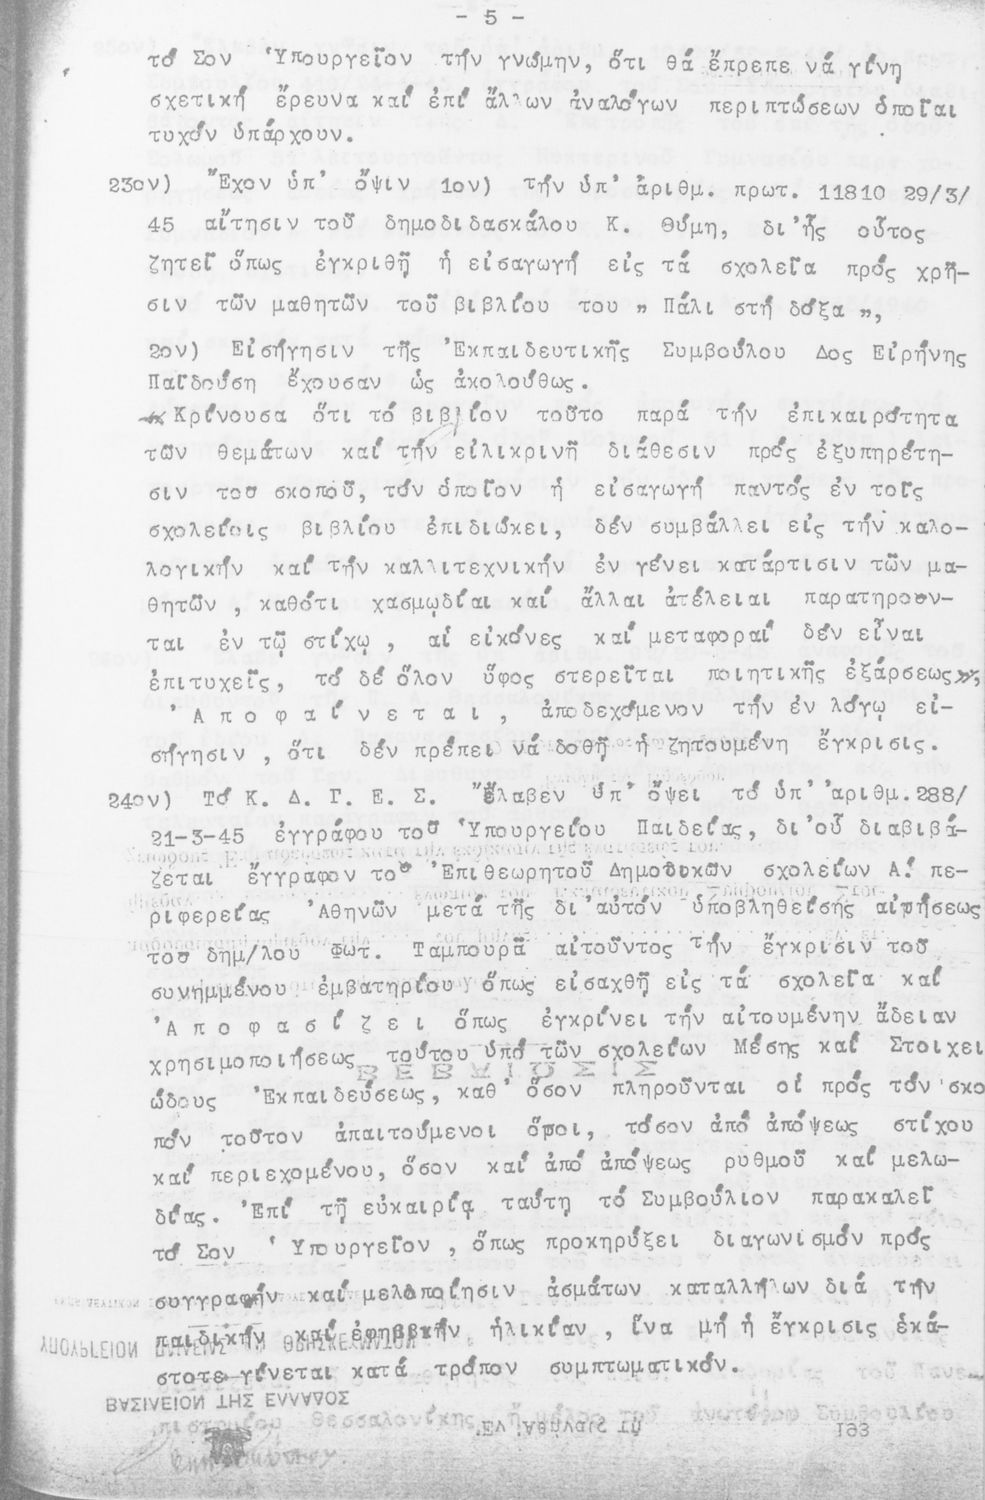 - 5 -
τό Σον Ὑπουργεῖον τήν γνώμην, ὅτι θά ἔπρεπε νά γίνῃ
σχετική ἔρευνα καί ἐπί ἄλλων ἀναλόγων περιπτώσεων ὁποῖαι
τυχόν ὑπάρχουν.
23ον) Ἔχον ὑπ' ὄψιν 1ον) τήν ὑπ' ἀριθμ. πρωτ. 11810 29/3/
45 αἴτησιν τοῦ δημοδιδασκάλου Κ. Θύμη, δι'ἧς οὗτος
ζητεῖ ὅπως ἐγκριθῇ ἡ εἰσαγωγή εἰς τά σχολεῖα πρός χρῆ-
σιν τῶν μαθητῶν τοῦ βιβλίου του " Πάλι στή δόξα ",
2ον) Εἰσήγησιν τῆς Ἐκπαιδευτικῆς Συμβούλου Δος Εἰρήνης
Παϊδούση ἔχουσαν ὡς ἀκολούθως.
« Κρίνουσα ὅτι τό βιβλίον τοῦτο παρά τήν ἐπικαιρότητα
τῶν θεμάτων καί τήν εἰλικρινῆ διάθεσιν πρός ἐξυπηρέτη-
σιν του σκοποῦ, τόν ὁποῖον ἡ εἰσαγωγή παντός ἐν τοῖς
σχολείοις βιβλίου ἐπιδιώκει, δέν συμβάλλει εἰς τήν καλο-
λογικήν καί τήν καλλιτεχνικήν ἐν γένει κατάρτισιν τῶν μα-
θητῶν , καθότι χασμῳδίαι καί ἄλλαι ἀτέλειαι παρατηρουν-
ται ἐν τῷ στίχῳ , αἱ εἰκόνες καί μεταφοραί δέν εἶναι
ἐπιτυχεῖς, τό δέ ὅλον ὕφος στερεῖται ποιητικῆς ἐξάρσεως»,
Ἀ π ο φ α ί ν ε τ α ι , ἀποδεχόμενον τήν ἐν λόγῳ εἰ-
σήγησιν , ὅτι δέν πρέπει νά δοθῇ ἡ ζητουμένη ἔγκρισις.
24ον) Τό Κ. Δ. Γ. Ε. Σ. Ἔλαβεν ὑπ' ὄψει τό ὑπ' ἀριθμ. 288/
21-3-45 ἐγγράφου τοῦ Ὑπουργείου Παιδείας, δι'οὗ διαβιβά-
ζεται ἔγγραφον τοῦ Ἐπιθεωρητοῦ Δημοτικῶν σχολείων Α. πε-
ριφερείας Ἀθηνῶν μετά τῆς δι'αὐτόν ὑποβληθείσης αἰτήσεως
του δημ/λου Φωτ. Ταμπουρᾶ αἰτοῦντος τήν ἔγκρισιν τοῦ
συνημμένου ἐμβατηρίου ὅπως εἰσαχθῇ εἰς τά σχολεῖα καί
Ἀ π ο φ α σ ί ζ ε ι ὅπως ἐγκρίνει τήν αἰτουμένην ἄδειαν
χρησιμοποιήσεως τούτου ὑπό τῶν σχολείων Μέσης καί Στοιχει
ώδους Ἐκπαιδεύσεως, καθ' ὅσον πληροῦνται οἱ πρός τόν σκο
πόν τοῦτον ἀπαιτούμενοι ὅροι, τόσον ἀπό ἀπόψεως στίχου
καί περιεχομένου, ὅσον καί ἀπό ἀπόψεως ρυθμοῦ καί μελω-
δίας. Ἐπί τῇ εὐκαιρίᾳ ταύτῃ τό Συμβούλιον παρακαλεῖ
τό Σον Ὑπουργεῖον , ὅπως προκηρύξει διαγωνισμόν πρός
συγγραφήν καί μελοποίησιν ἀσμάτων καταλλήλων διά τήν
παιδικήν καί ἐφηβικήν ἡλικίαν , ἵνα μή ἡ ἔγκρισις ἑκά-
στοτε γίνεται κατά τρόπον συμπτωματικόν.